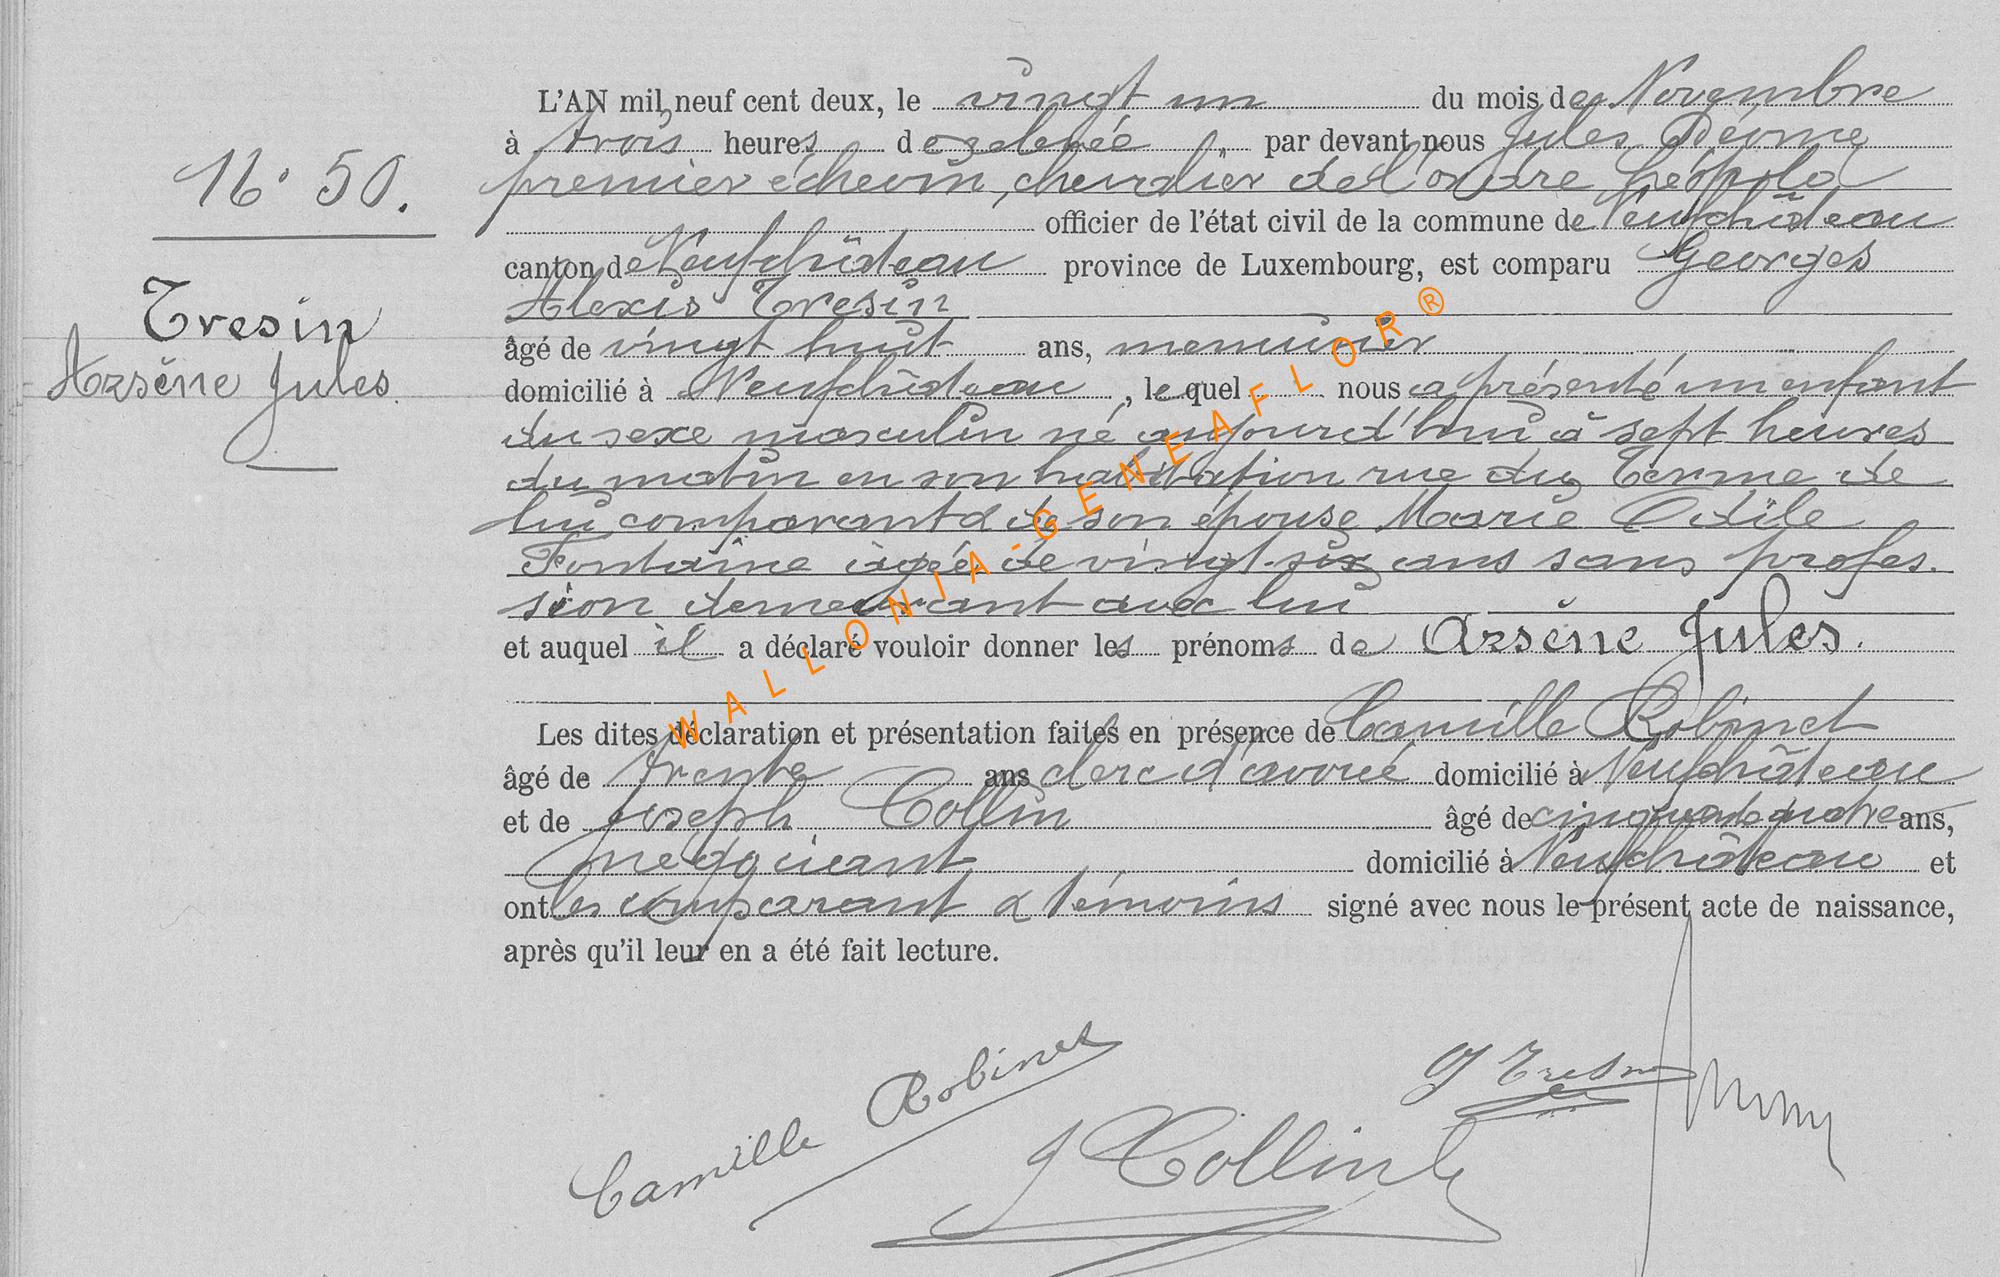 L'AN mil neuf cent deux, le vingt un du mois de Novembre
à trois heures de relevée, par devant nous Jules
N° 50. premier échevin, chevalier de l'ordre Léopold
officier de l'état civil de la commune de Neufchâteau
canton de Neufchâteau province de Luxembourg, est comparu Georges
Alexis Tresin
Tresin
Arsène Jules.
âgé de vingt huit ans, menuisier
domicilié à Neufchâteau, lequel nous a présenté un enfant
du sexe masculin né aujourd'hui à sept heures
du matin en son habitation rue du Terme de
lui comparant & de son épouse Marie Odile
Fontaine âgée de vingt-six ans sans profes-
sion demeurant avec lui
et auquel il a déclaré vouloir donner les prénoms de Arsène Jules.
Les dites déclaration et présentation faites en présence de Camille Robinet
âgé de trente ans clerc d'avoué domicilié à Neufchâteau
et de Joseph Collin âgé de cinquante quatre ans,
négociant domicilié à Neufchâteau et
ont les comparant & témoins signé avec nous le présent acte de naissance,
après qu'il leur en a été fait lecture.
Camille Robinet
G Tresin
J Collin
WALLONIA-GENEAFLOR®